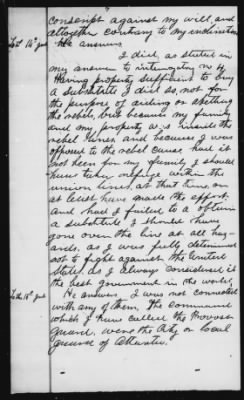 conscript against my will, and
altogether contrary to my inclination
He answers
I did, as stated in
my answer to interrogatory no 4
Having property sufficient to buy
a substitute I did so, not for
the purpose of aiding or abetting
the rebels, but because my family
and my property was inside the
rebel lines and because I was
opposed to the rebel cause had it
not been for my family I should
have taken refuge within the
union lines, at that time, or
at least have made the effort,
and had I failed to obtain
a substitute I should have
gone over the line at all haz-
ards, as I was fully determined
not to fight against the United
States, as I always considered it
the best government in the world,
To the 15th Int He answers, I was not connected
with any of them, The command
which I have called the Provost
Guard, were the City or local
guard of Atlanta.